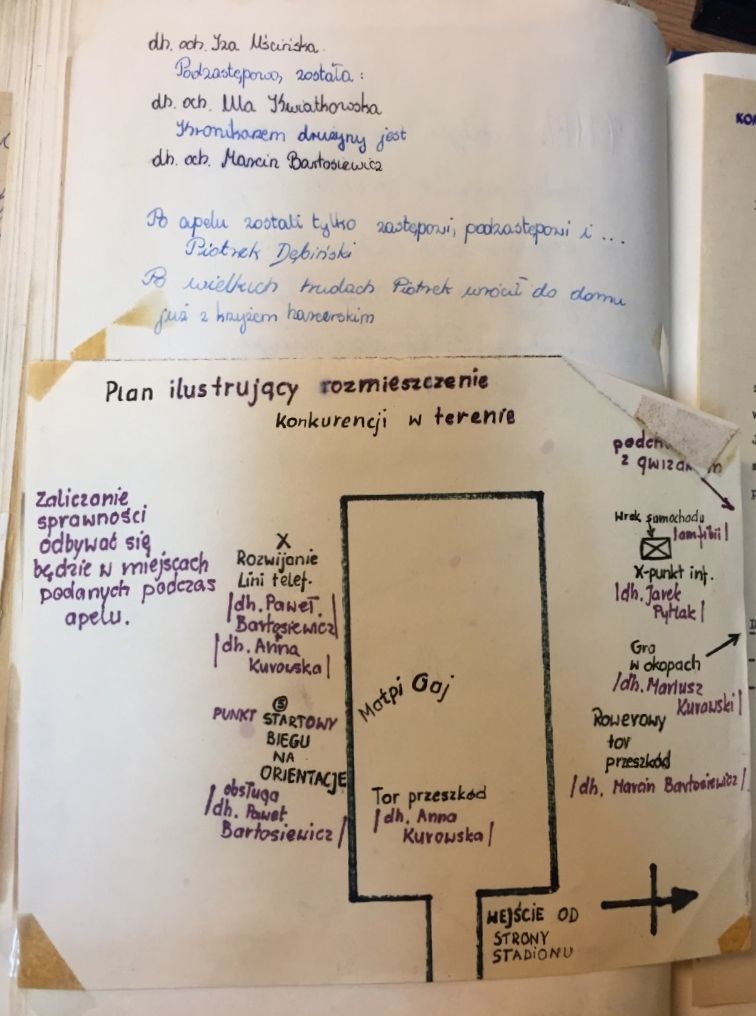 dh. och. Iza Mścińska.
Podzastępową została:
dh. och. Ula Kwiatkowska
Kronikarzem drużyny jest
dh. och. Marcin Bartosiewicz
Po apelu zostali tylko zastępowi, podzastępowi i ...
Piotrek Dębiński
Po wielkich trudach Piotrek wrócił do domu
już z krzyżem harcerskim
Plan ilustrujący rozmieszczenie
konkurencji w terenie
Zaliczanie
sprawności
odbywać się
będzie w miejscach
podanych podczas
apelu.
X
Rozwijanie
Lini telef.
/dh. Paweł
Bartosiewicz/
/dh. Anna
Kurowska/
S
PUNKT STARTOWY
BIEGU
NA
ORIENTACJE
/obsługa
dh. Paweł
Bartosiewicz/
Małpi Gaj
Tor przeszkód
/dh. Anna
Kurowska/
z gwizdkiem
Wrak samochodu
/amfibii/
X-punkt inf.
/dh. Jarek
Pytlak/
Gra
w okopach
/dh. Mariusz
Kurowski/
Rowerowy
tor
przeszkód
/dh. Marcin Bartosiewicz/
WEJŚCIE OD
STRONY
STADIONU